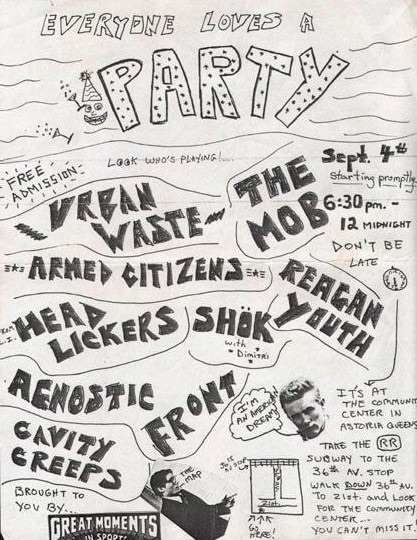 EVERYONE LOVES A
PARTY
LOOK WHO'S PLAYING!...
FREE
ADMISSION
Sept. 4th
Starting promptly
6:30 pm. -
12 MIDNIGHT
DON'T BE
LATE
URBAN
WASTE
THE
MOB
ARMED CITIZENS
REAGAN
YOUTH
FROM
L.I.
HEAD
LICKERS
SHÖK
with
Dimitri
AGNOSTIC
FRONT
CAVITY
CREEPS
I'M
AN AMERICAN
DREAM!
IT'S AT
THE COMMUNITY
CENTER IN
ASTORIA QUEENS
TAKE THE RR
SUBWAY TO THE
36th AV. STOP
WALK DOWN 36th AV.
TO 21st. and LOOK
FOR THE COMMUNITY
CENTER...
YOU CAN'T MISS IT!
THE
MAP
21st.
GO
HERE!
BROUGHT TO
YOU BY...
GREAT MOMENTS
IN SPORTS